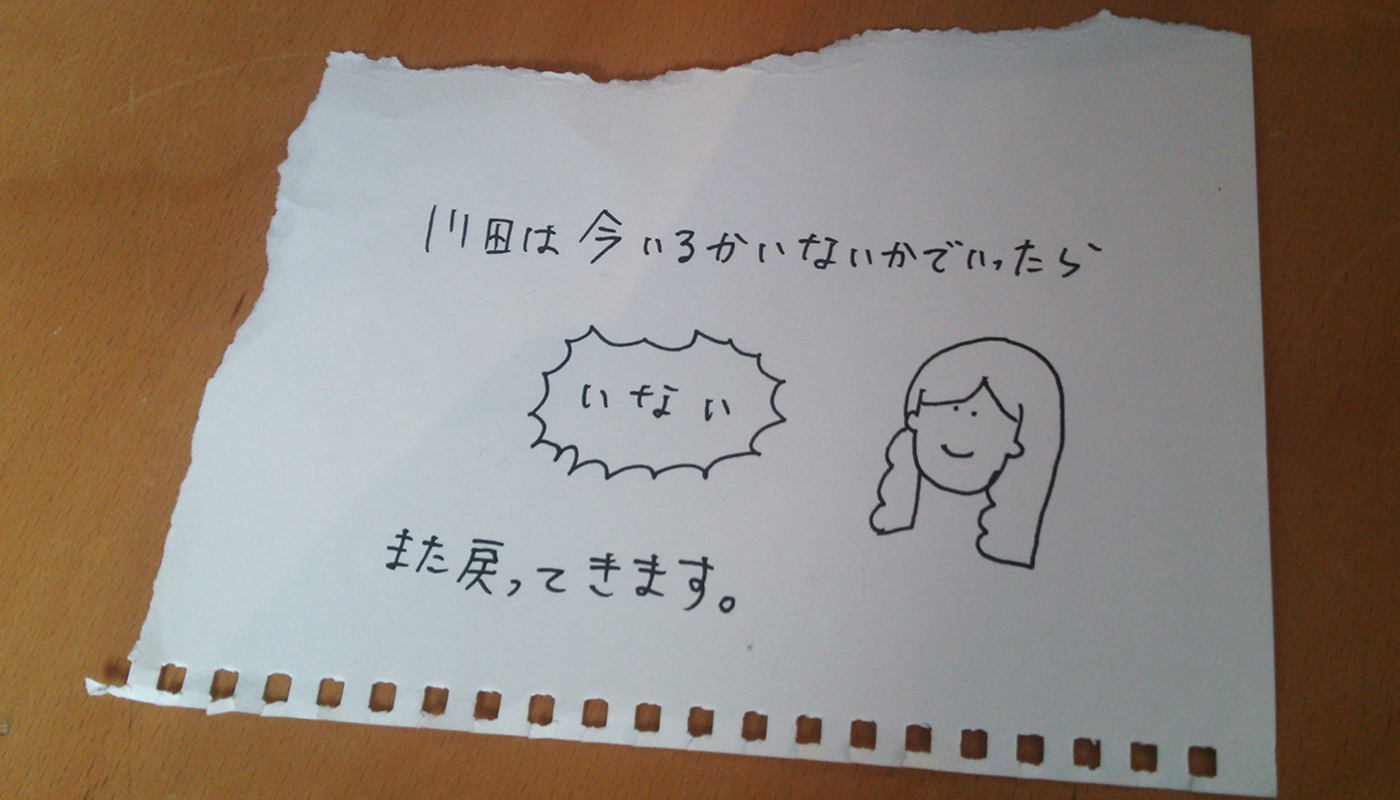 川田は今いるかいないかでいったら
いない
また戻ってきます。